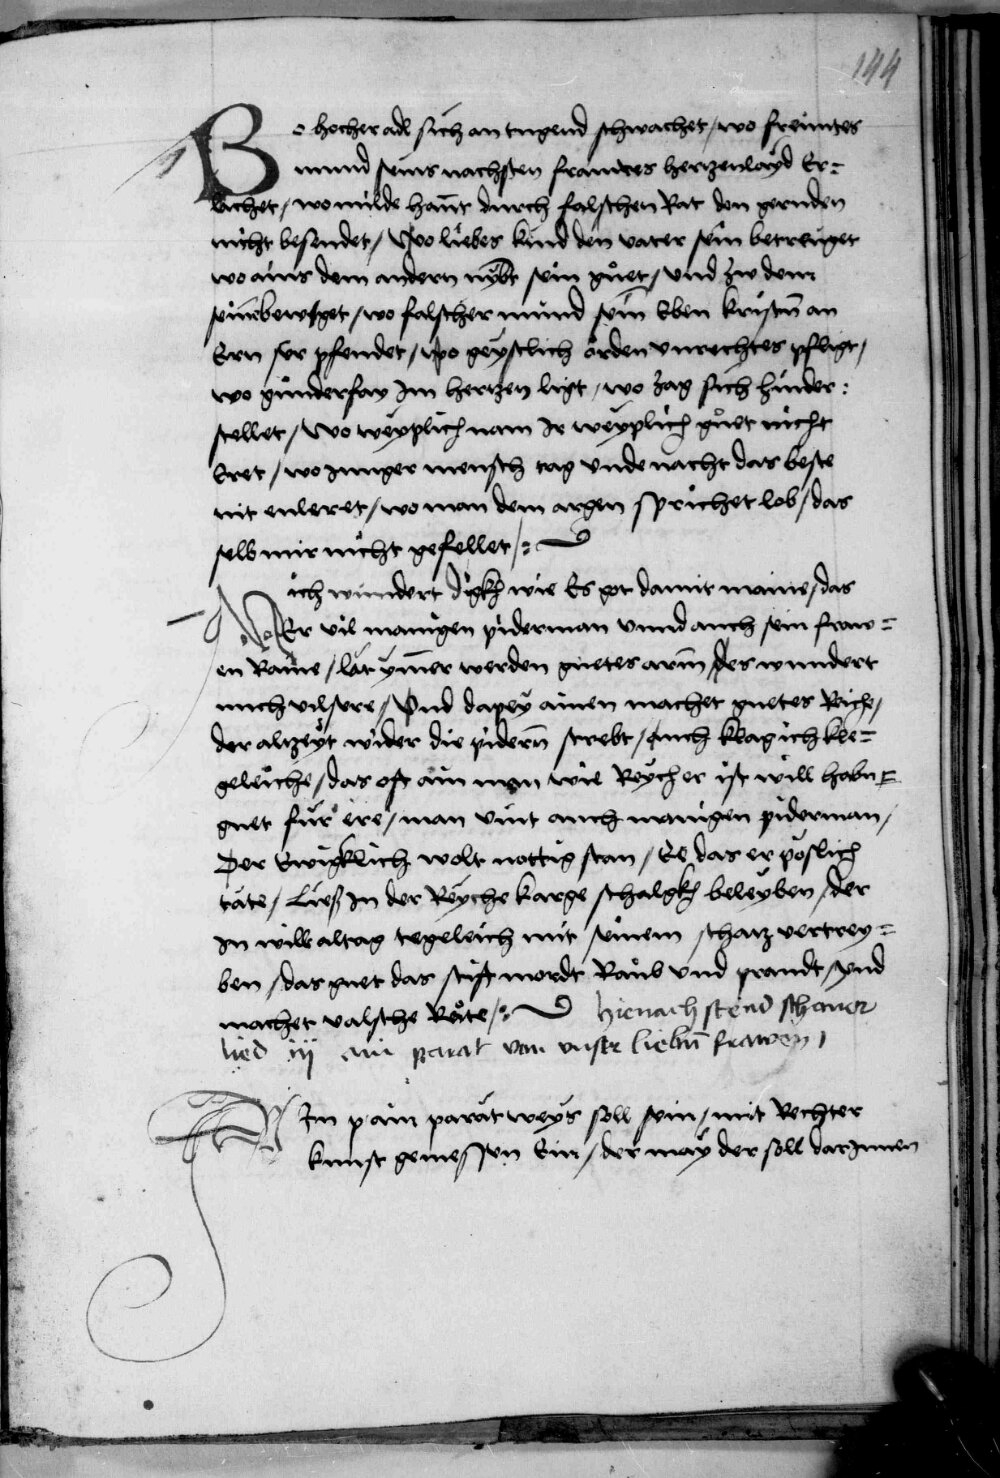 144
Wo hocher adl sich an tugend schwachet / wo freuntes
mund seins nachsten frawntes hertzenlayd Er=
lachet / wo milde hannt durch falschen Rat den gernden
nicht besendet / Wo liebes kind den vater sein betreuget
wo ains dem andern nÿbt sein guet / vnd zw dem
seinen bewget / wo falscher mund sein Eben kristen an
Ern ser pfendet / Wo geystlich orden vnrechtes pfligt /
wo gunderfay Im hertzen ligt / wo zag sich hinder:
stellet / Wo weyplich nam Ir weyplich guet nicht
Eret / wo Junger mensch tag vnde nacht das beste
nit enleret / wo man dem argen sprichet lob / das
selb mir nicht gefellet /:
Mich wundert digkh wie Es got damit maine / das
Er vil manigen piderman vnnd auch sein fraw=
en Raine / lat ymer werden guetes arm / des wundert
mich vil sere / Vnd dapey ainen machet guetes Reiche /
der altzeyt wider die pidern strebt / auch klag ich kle=
geleiche / das oft ain man wie Reych er ist will habn
guet für ere / man vint auch manigen piderman /
Der Ewigklich wolt nottig stan / Ee das er poslich
täte / Ließ In der Reyche karge schalgkh beleyben / der
In will altag tegeleich mit seinem schatz vertrey=
ben / das guet das stift mordt Raub vnd prandt / vnd
machet valsche Räte /: hienach stend schaner
lied iij ain parat von vnser liebn frawen /
In p ain parat weys soll sein / mit Rechter
kunst gemessen Ein / der may der soll dar Innen